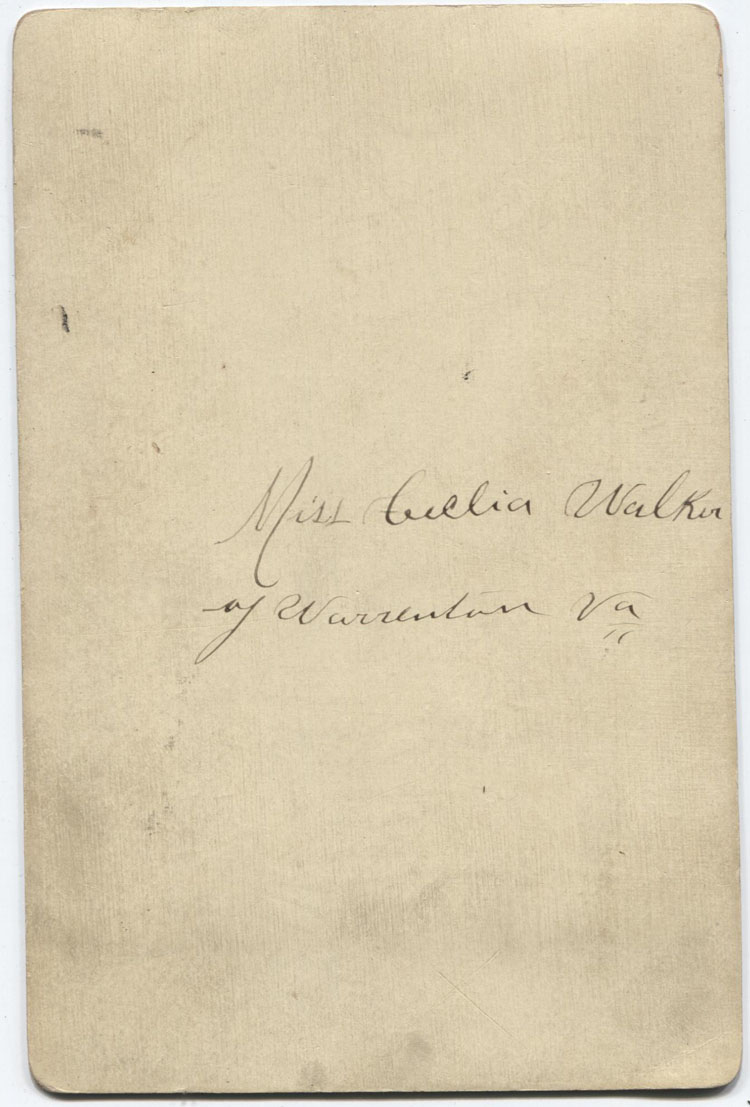 Miss Cecelia Walker
of Warrenton Va